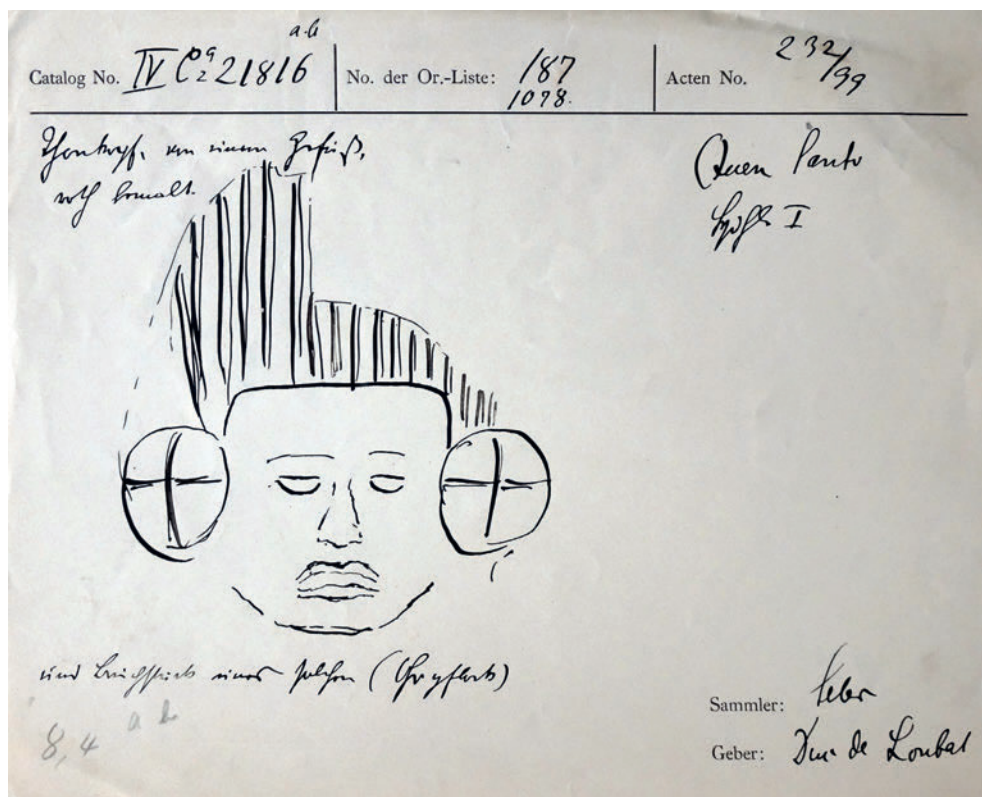 a.b
Catalog No. IV Ca 21816
No. der Or.-Liste: 187
1078.
Acten No. 232/99
Thonkopf, von einem Gefäß,
roth bemalt.
Quen Santo
Höhle I
und Bruchstück eines solchen (Ohrpflock)
a b
8,4
Sammler: Seler
Geber: Duc de Loubat